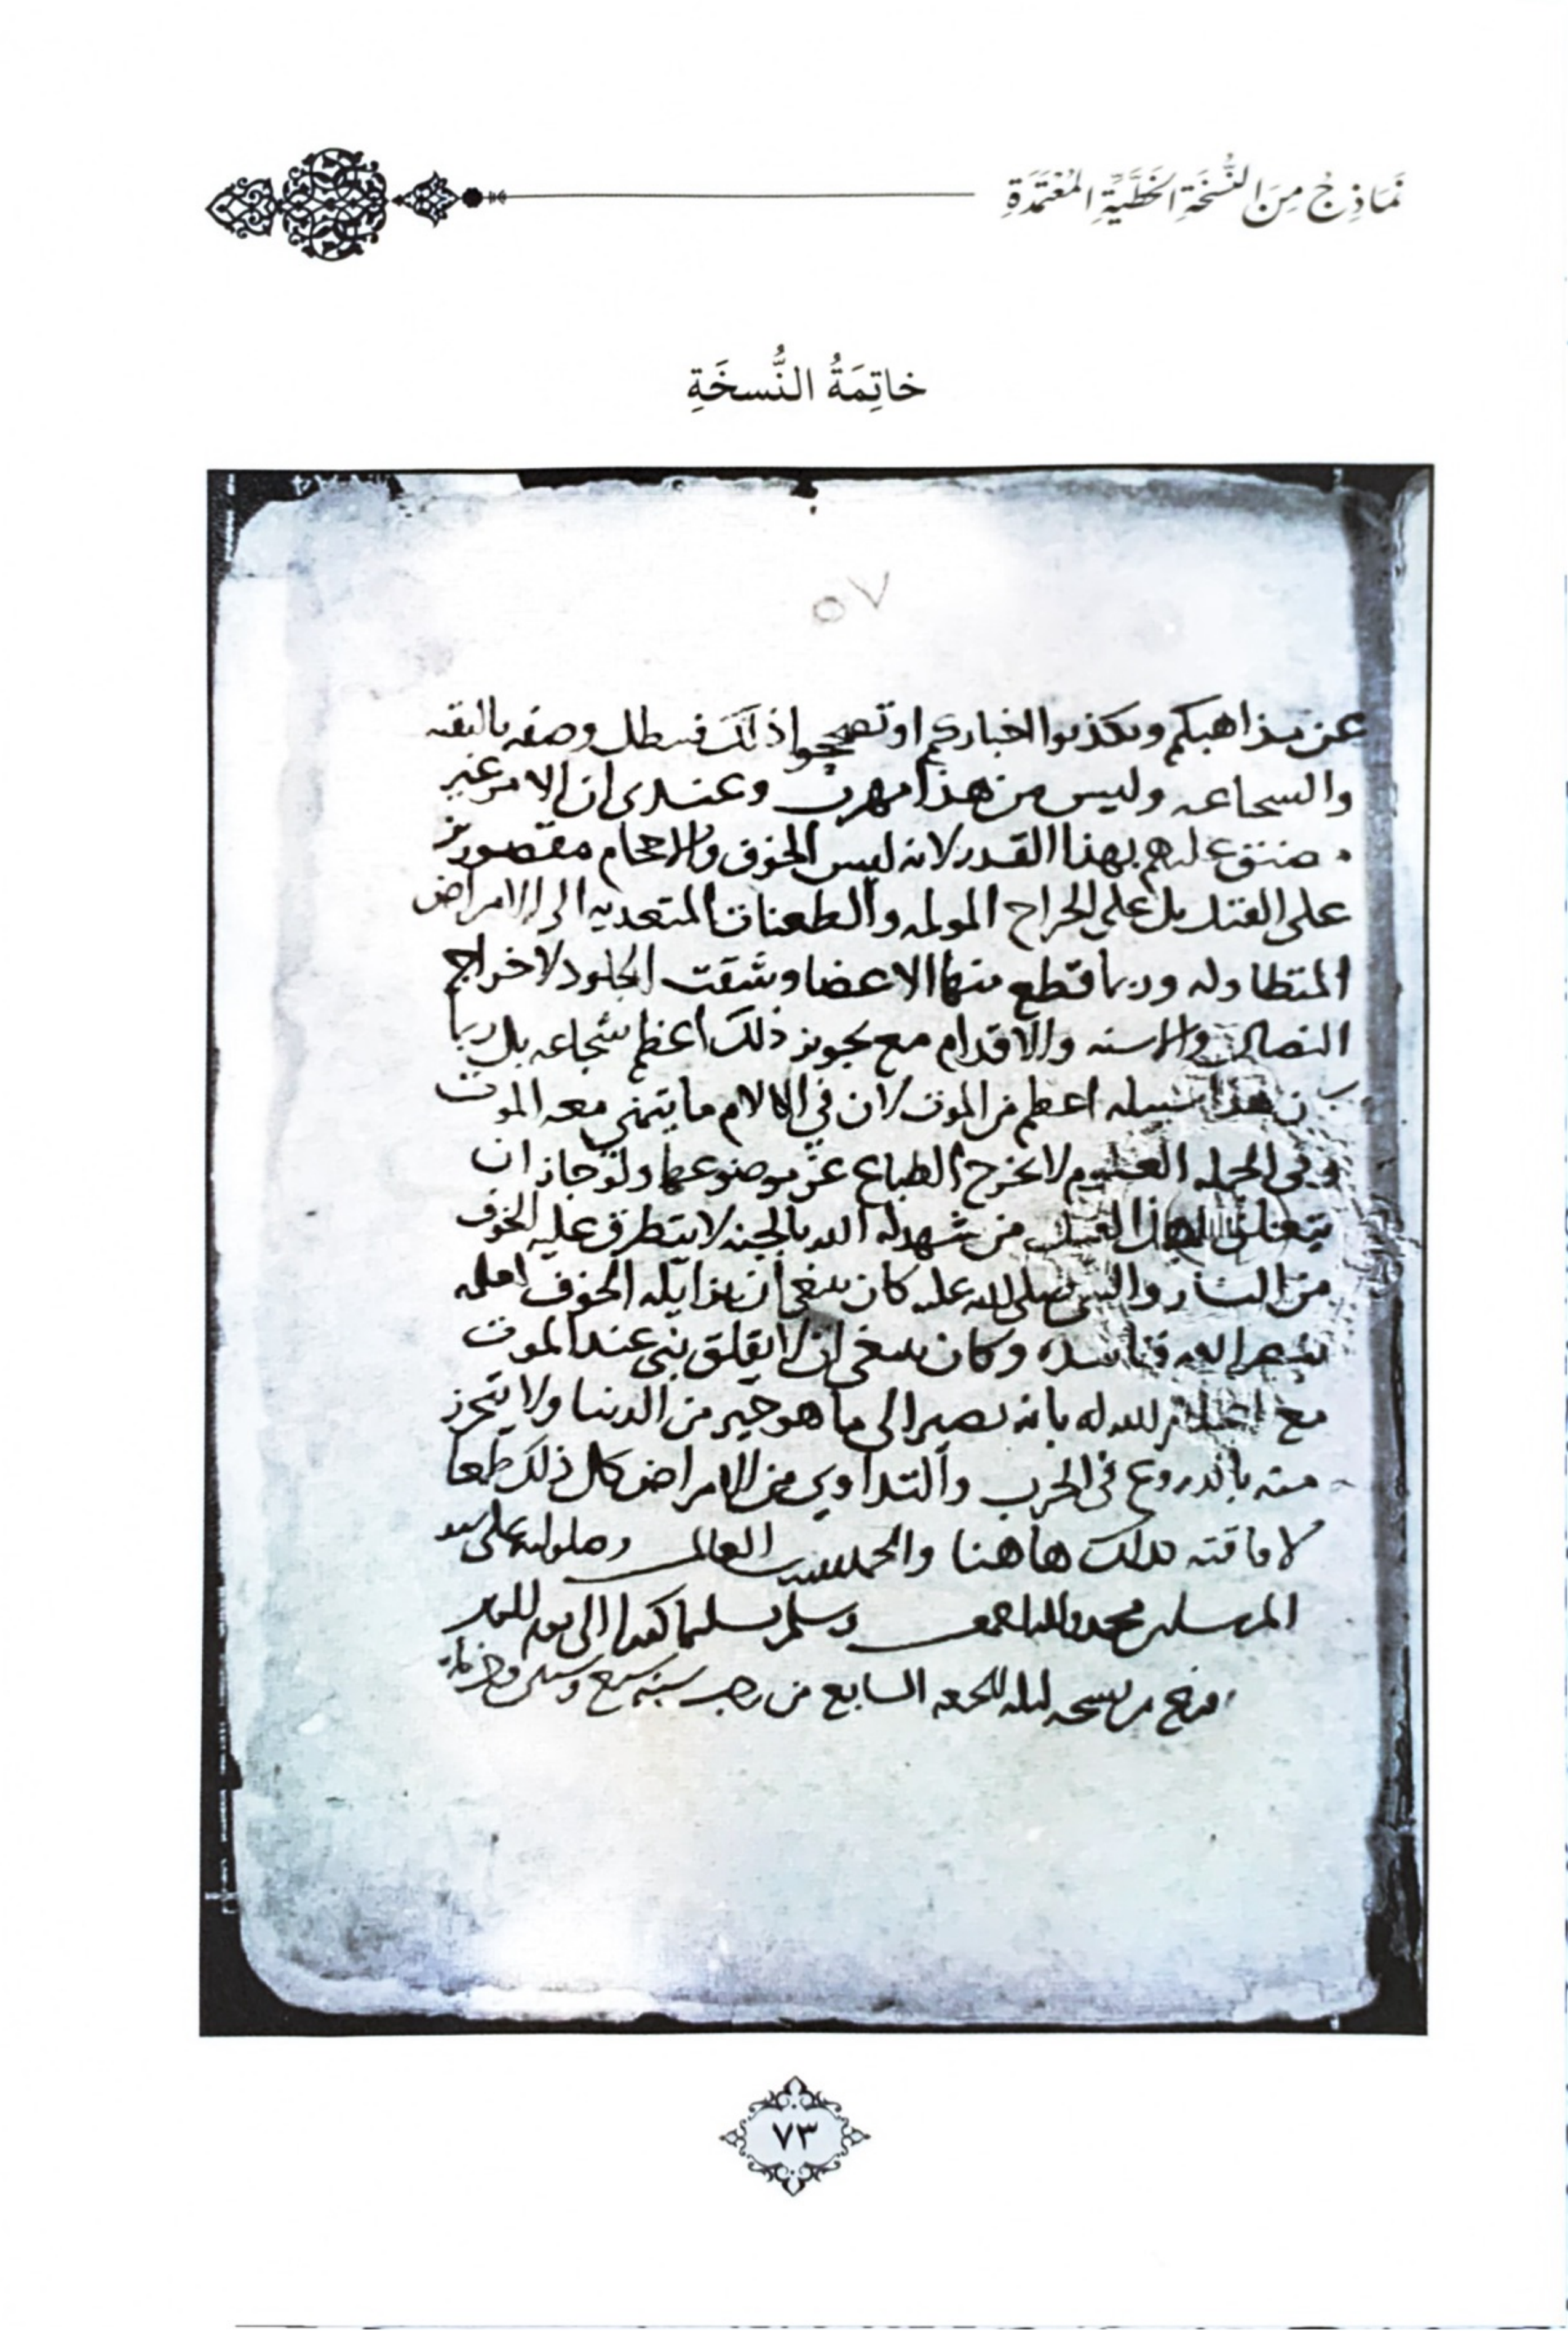 نَمَاذِجُ مِنَ النُّسْخَةِ الخَطِّيَّةِ المُعْتَمَدَةِ
خاتِمَةُ النُّسخَةِ
٥٧
عن مذاهبكم وتكذبوا اخباركم او تصححوا ذلك فيبطل وصفه بالبقيه
والسجاعه وليس من هذا مهرب وعندى ان الامر غير
ضيق عليهم بهذا القدر لانه ليس الخوف والاحجام مقصورين
على القتل بل على الجراح المولمه والطعنات المتعديه الى الامراض
المتطاوله وربما قطع منها الاعضا وشقت الجلود لاخراج
النصال والاسنه والاقدام مع تجويز ذلك اعظم شجاعه بل ربما
هذا سبيله اعظم من الموت لان في الالام ما يتمنى معه الموت
وفى الجمله العلوم لا تخرج الطباع عن موضوعها ولو جاز ان
من شهد له الله بالجنه لا يتطرق عليه الخوف
من النار والنبي صلى الله عليه كان ينبغي ان يزايله الخوف
وكان ينبغى ان لا يقلق نبى عند الموت
مع اعلام الله له بانه يصير الى ما هو خير من الدنيا ولا يتحرز
منه بالدروع فى الحرب والتداوي من الامراض كل ذلك طبعا
لاوماقته هاهنا والحمد لله رب العالمين وصلواته على سيد
المرسلين محمد واله اجمعين وسلم تسليما كثيرا الى يوم الدين
فرغ من نسخه ليله الجمعه السابع من رجب سنه سبع
٧٣